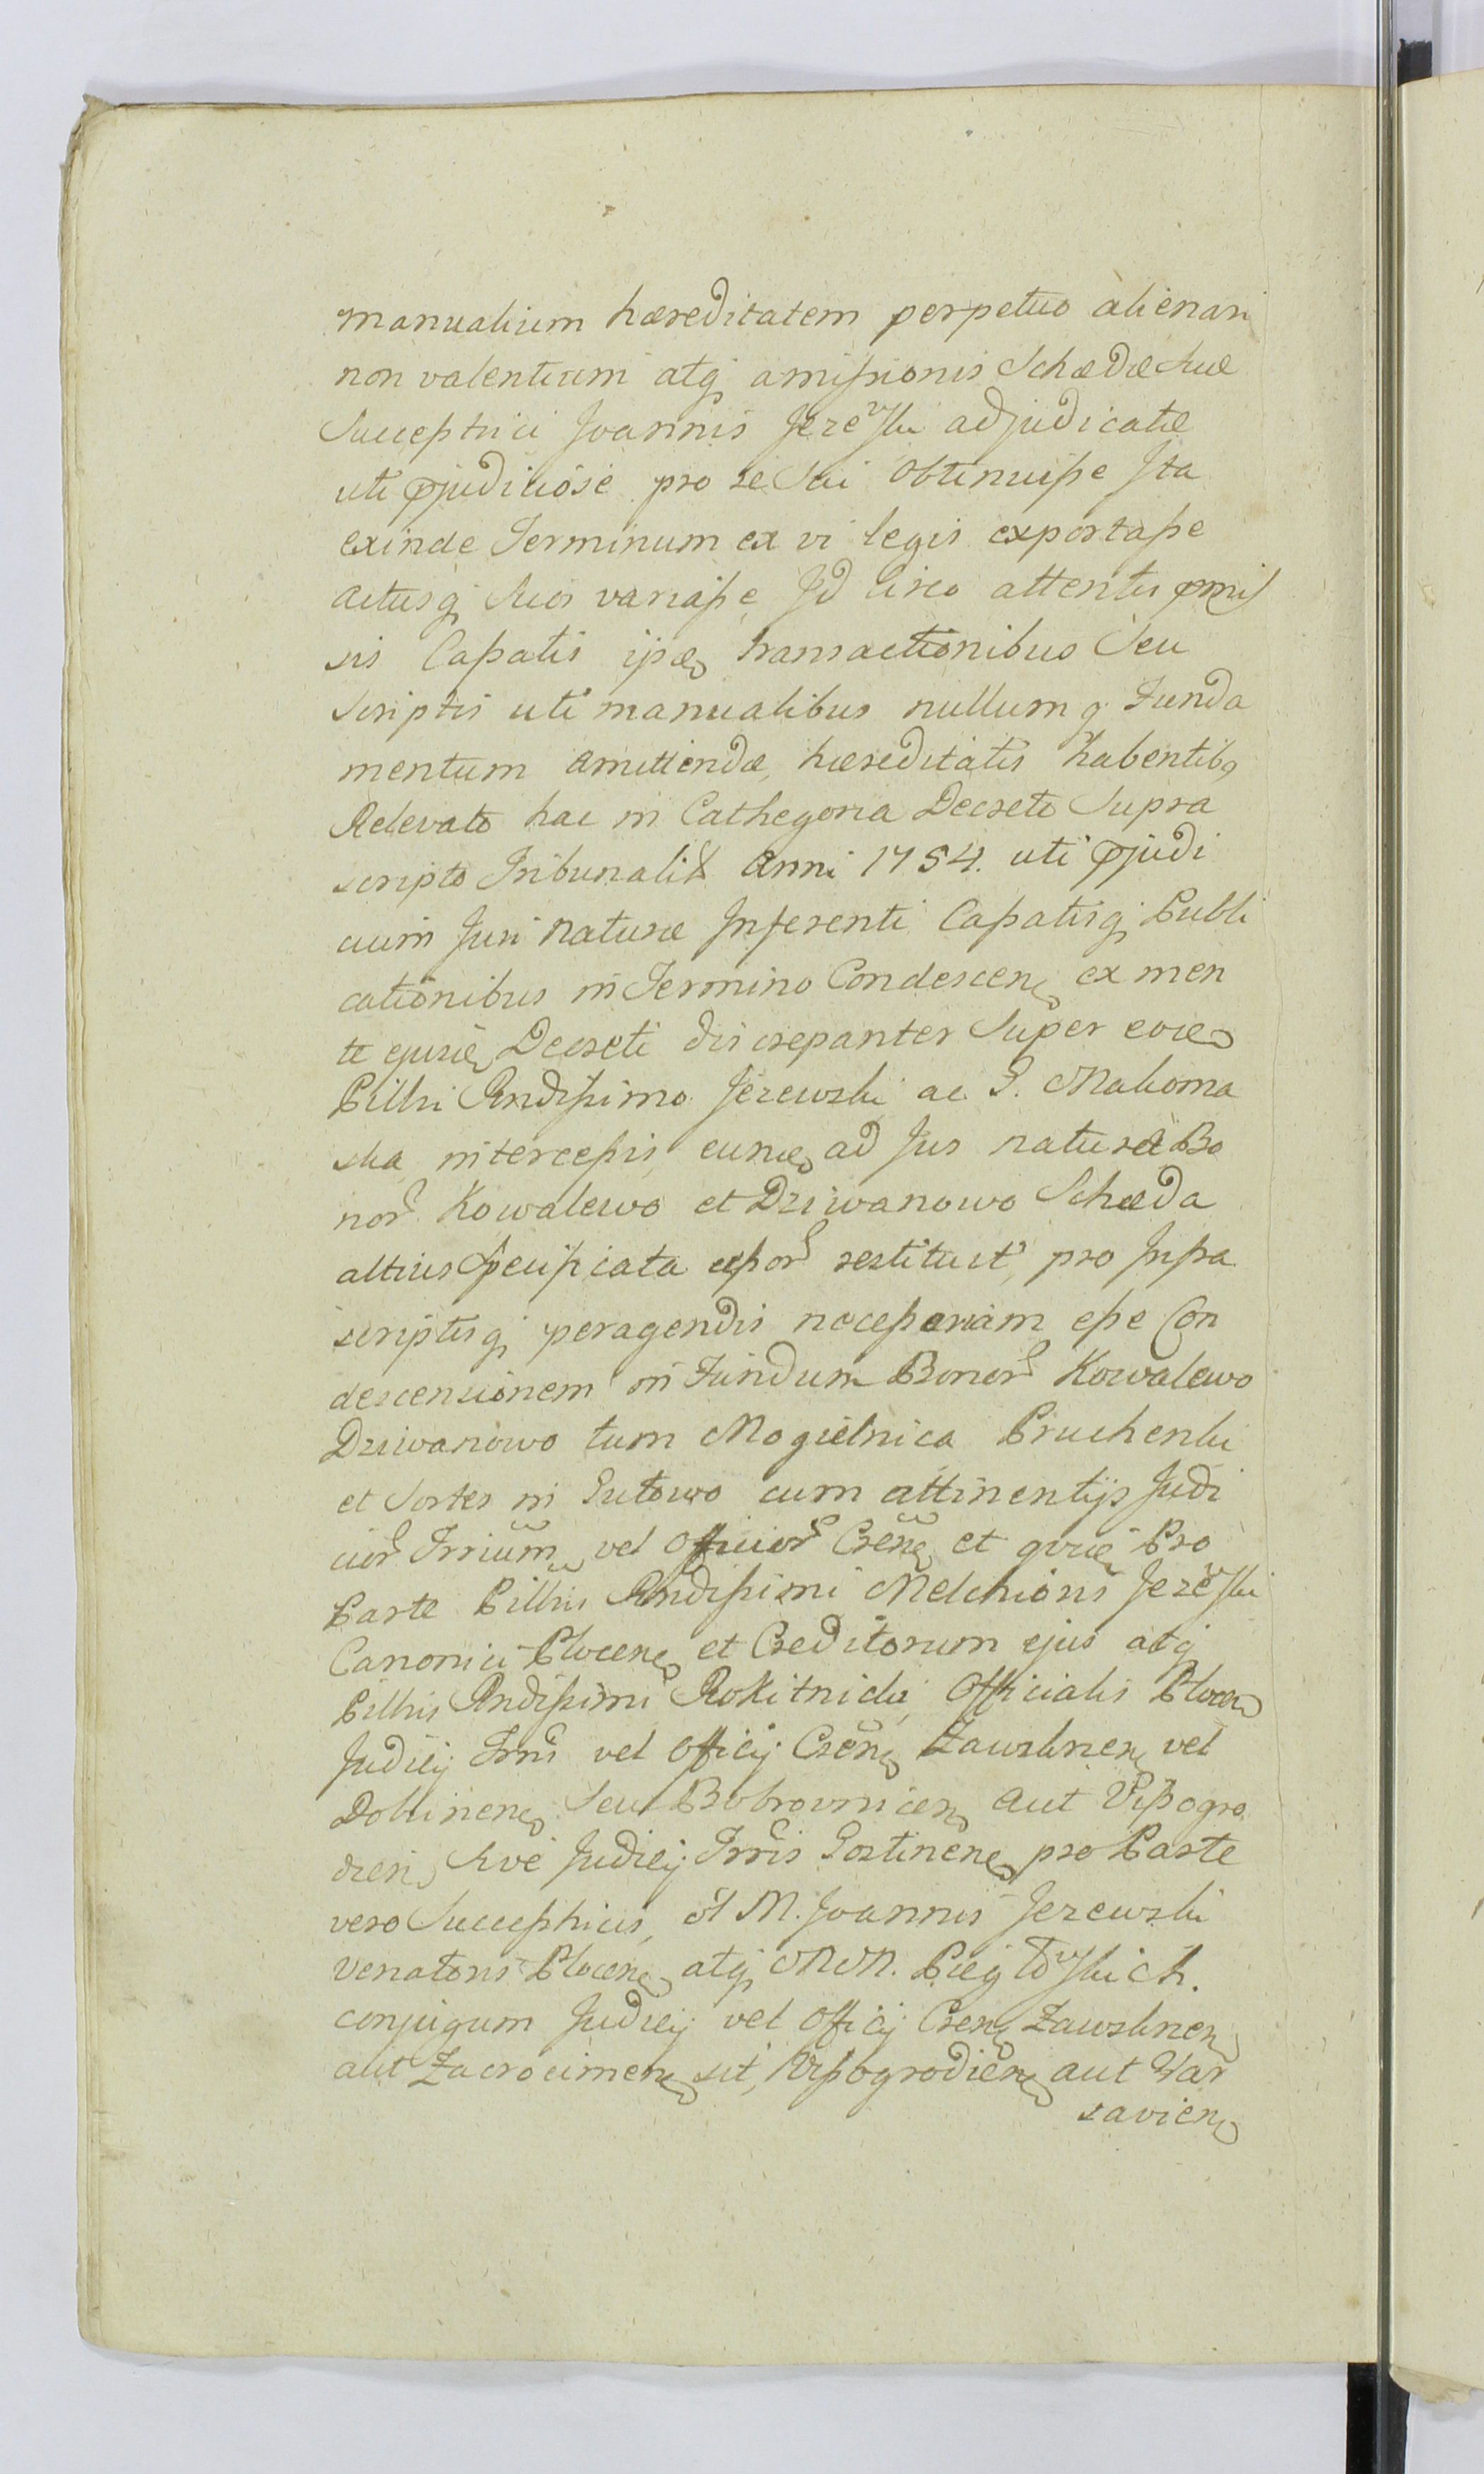 manualium hæreditatem perpetuo alienari
non valentium atq amissionis Schædæ suæ
Susceptrici Joannis Jezewski adjudicatæ
uti pjudiciose pro se sui obtinuisse Ita
exinde Terminum ex vi legis exportasse
actusq suos variasse Id circo attentis pmis
sis Cassatis ipæ transactionibus seu
scriptis uti manualibus nullum q Funda
mentum amittendæ hæreditatis habentibq
Relevato hac in Cathegoria Decreto Supra
scripto Tribunalit Anni 1754. uti pjudi
cium Juri naturæ Inferenti Cassatisq Publi
cationibus in Termino Condescen ex men
te ejusd Decreti discrepanter Super
Pillri Rndissimo Jezewski ac G. Makoma
ska intercessis, ad Jus naturæ Bo
nor Kowalewo et Dziwanowo Schæda
altius specificata restituit, pro Infra
scriptisq peragendis necessariam esse Con
descensionem in Fundum Bonor Kowalewo
Dziwanowo tum Mogielnica Pruchenki
et Sortes in Gutowo cum attinentijs Judi
cior Trrium vel Officior Csen et Pro
Parte Pillris Rndissimi Melchioris Jezewski
Canonici Plocen et Creditorum ejus atq
Pillris Rndissimi Rokitnicki Officialis Plocen
Judicij Trris vel Officij Csen Zawskrnen vel
Dobrinen Seu Bobrownicen aut Vissogro
dien, sive Judicij Trris Gostinen pro Parte
vero Susceptricis, ol M. Joannis Jezewski
Venatoris Plocen atq MM. Piegłowskich
conjugum Judicij vel Officij Csen Zawskrnen
aut Zacrocimen sit, Vissogrodien aut War
savien